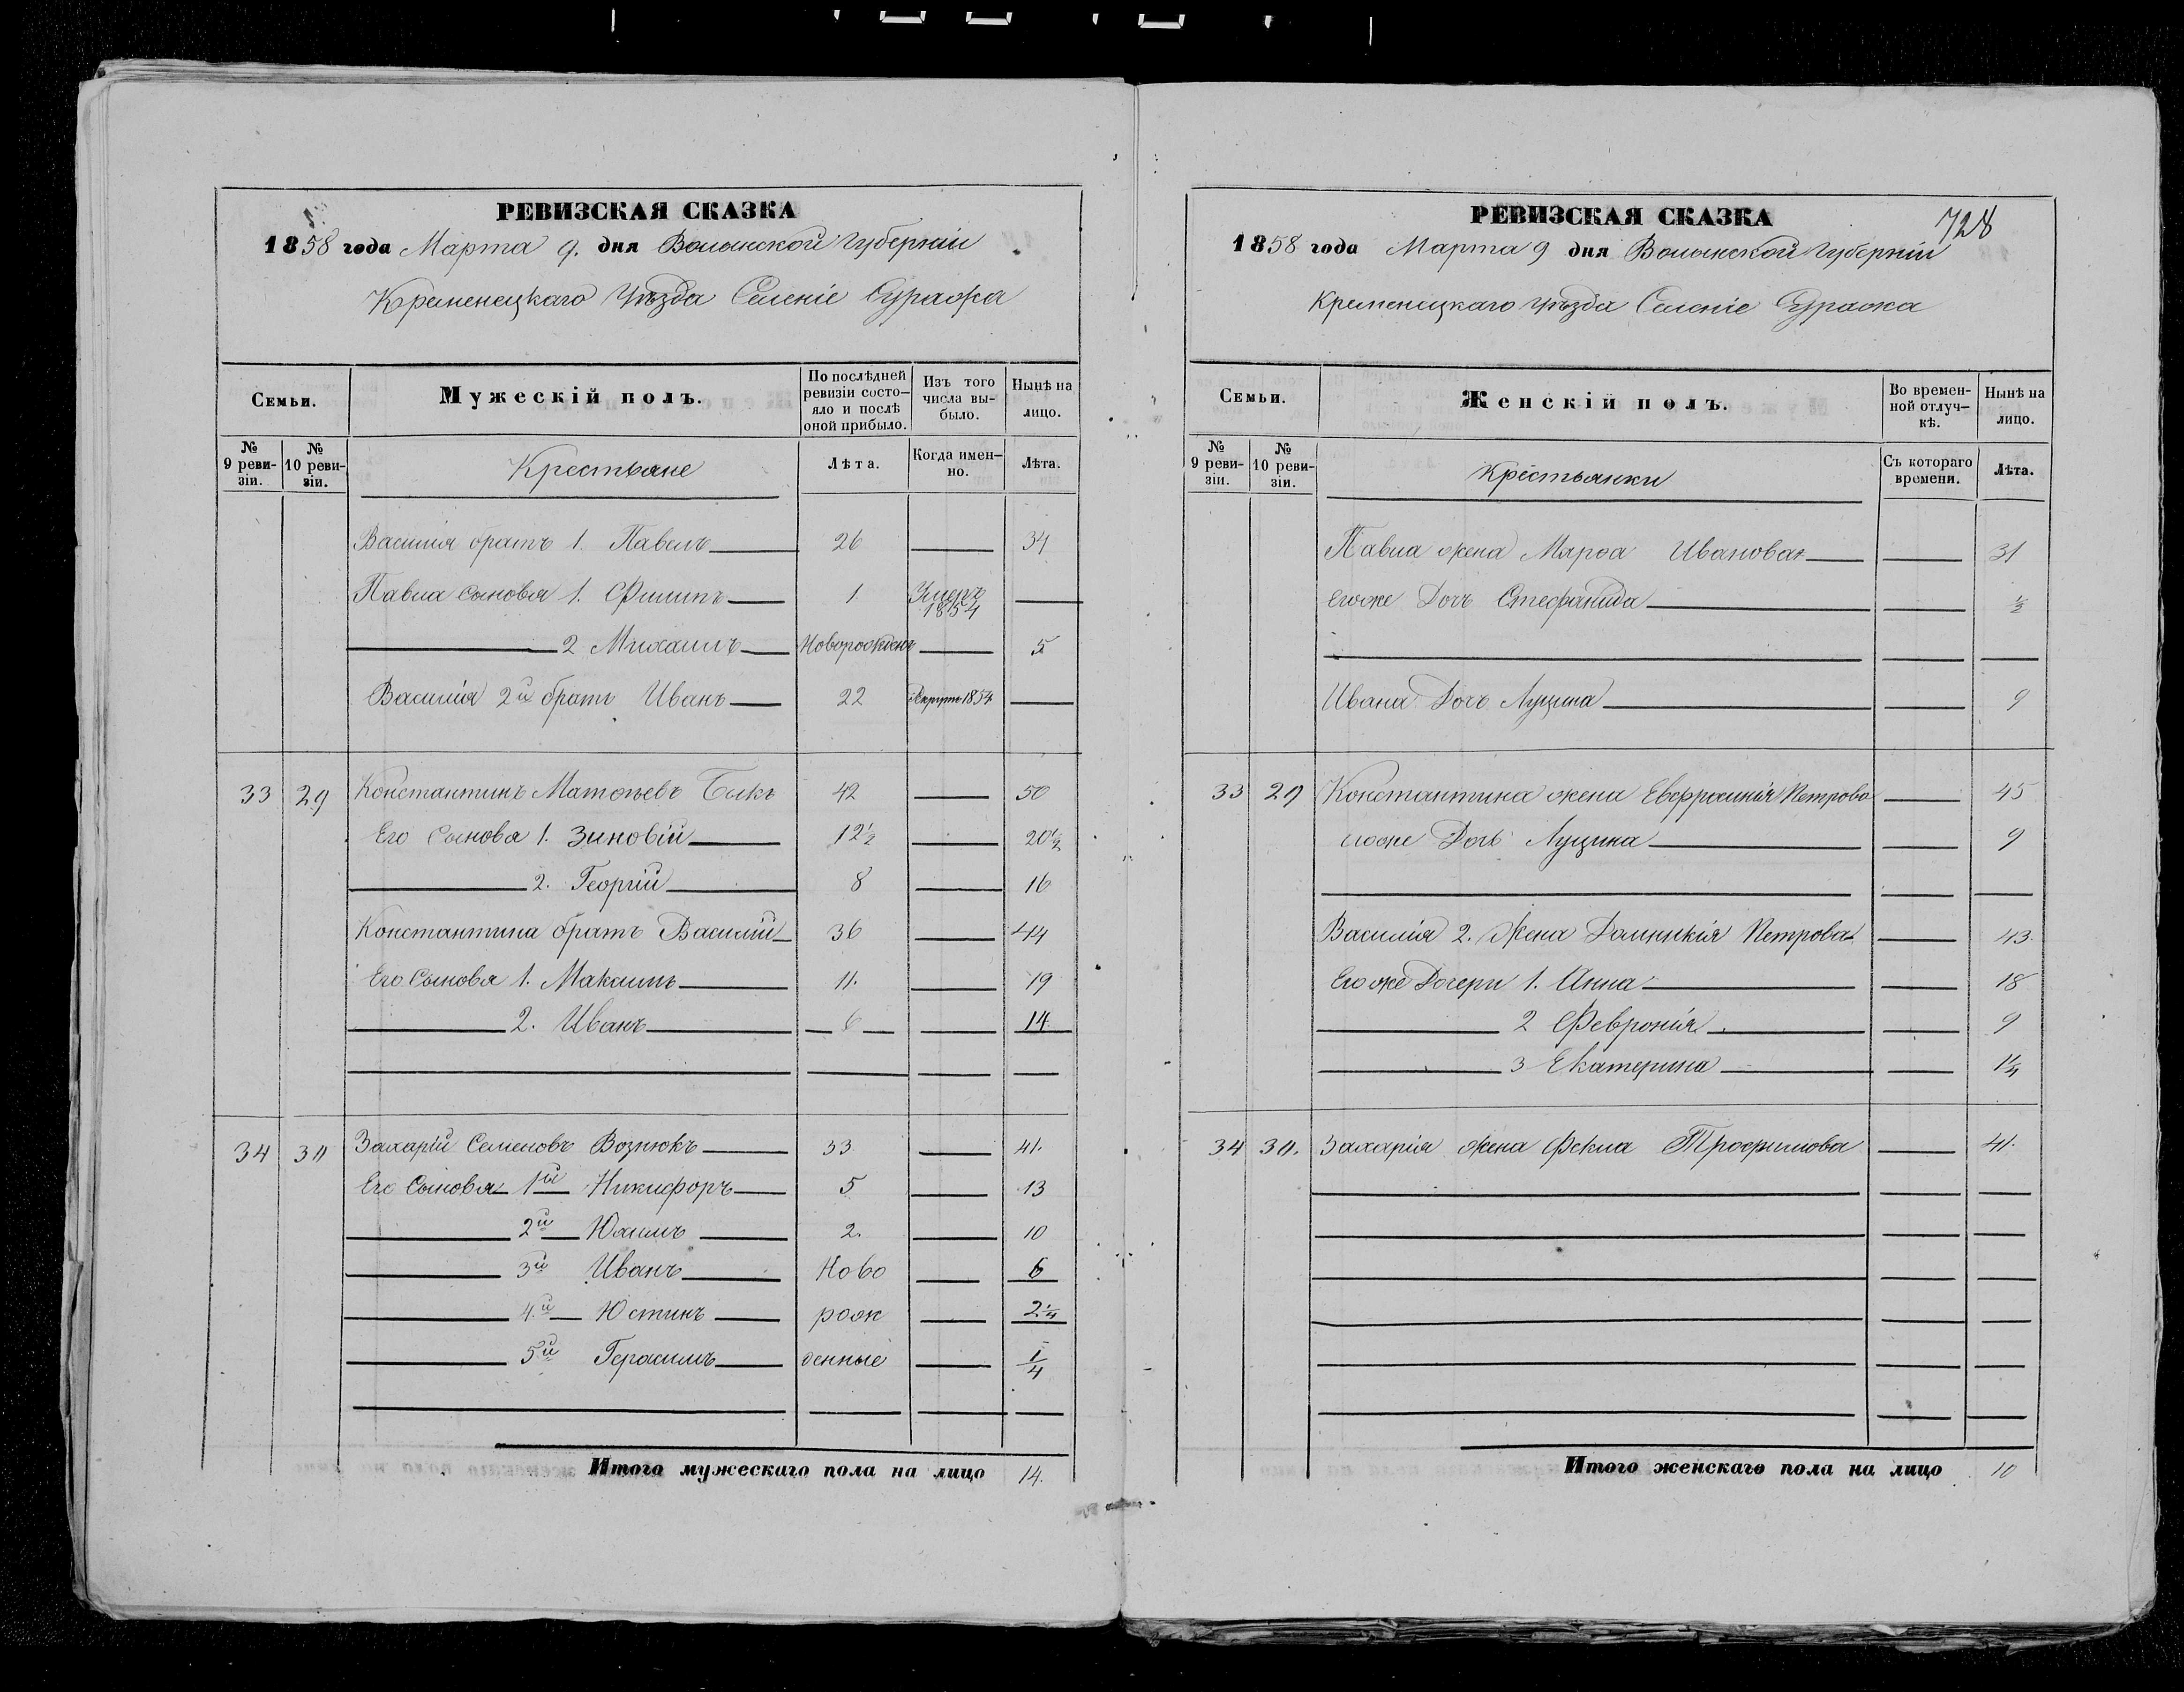 РЕВИЗСКАЯ СКАЗКА
1858 года Марта 9. дня Волынской Губерніи
Кременецкаго Уѣзда Селеніе Суража
Семьи.
Мужескій полъ.
По послѣдней ревизіи состояло и послѣ оной прибыло.
Изъ того числа выбыло.
Нынѣ на лицо.
№ 9 ревизіи.
№ 10 ревизіи.
Крестьяне
Лѣта.
Когда именно.
Лѣта.
Василія братъ 1. Павелъ 26 34
Павла сыновья 1. Филипъ 1 Умеръ 1854
2 Михаилъ Новорожден 5
Василія 2й братъ Иванъ 22 Рекрутъ 1854
33 29 Константинъ Матѳѣевъ Быкъ 42 50
Его Сыновя 1. Зиновій 12½ 20½
2. Георгій 8 16
Константина братъ Василій 36 44
Его Сыновя 1. Максимъ 11. 19
2. Иванъ 6 14
34 30 Захарій Семеновъ Вознюкъ 33 41.
Его Сыновья 1й Никифоръ 5 13
2й Юхимъ 2. 10
3й Иванъ Ново 6
4й Юстинъ рож 2¼
5й Герасимъ денные ¼
Итого мужескаго пола на лицо 14.
РЕВИЗСКАЯ СКАЗКА
728
1858 года Марта 9 дня Волынской Губерніи
Кременецкаго Уѣзда Селеніе Суража
Семьи.
Женскій полъ.
Во временной отлучкѣ.
Нынѣ на лицо.
№ 9 ревизіи.
№ 10 ревизіи.
Крестьянки
Съ котораго времени.
Лѣта.
Павла жена Марѳа Иванова 31
Егоже Дочъ Стефанида ½
Ивана Дочъ Луцина 9
33 29 Константина жена Евфросинія Петрова 45
егоже Дочь Луцина 9
Василія 2. Жена Домникія Петрова 43.
Егоже Дочери 1. Анна 18
2 Февронія 9
3 Екатерина 1¼
34 30. Захарія жена Фекла Трофимова 41.
Итого женскаго пола на лицо 10